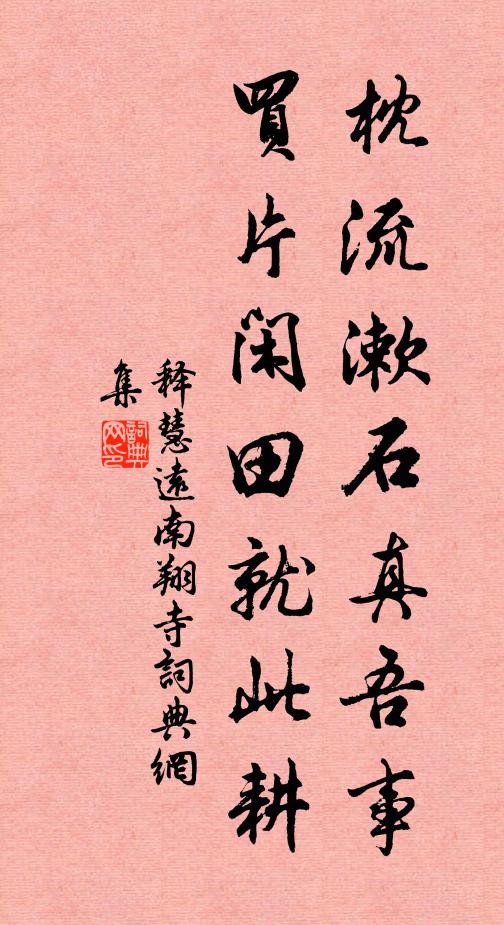 枕流漱石真吾事
買片閑田就此耕
释慧遠南翔寺詞典網
集
詞典網印